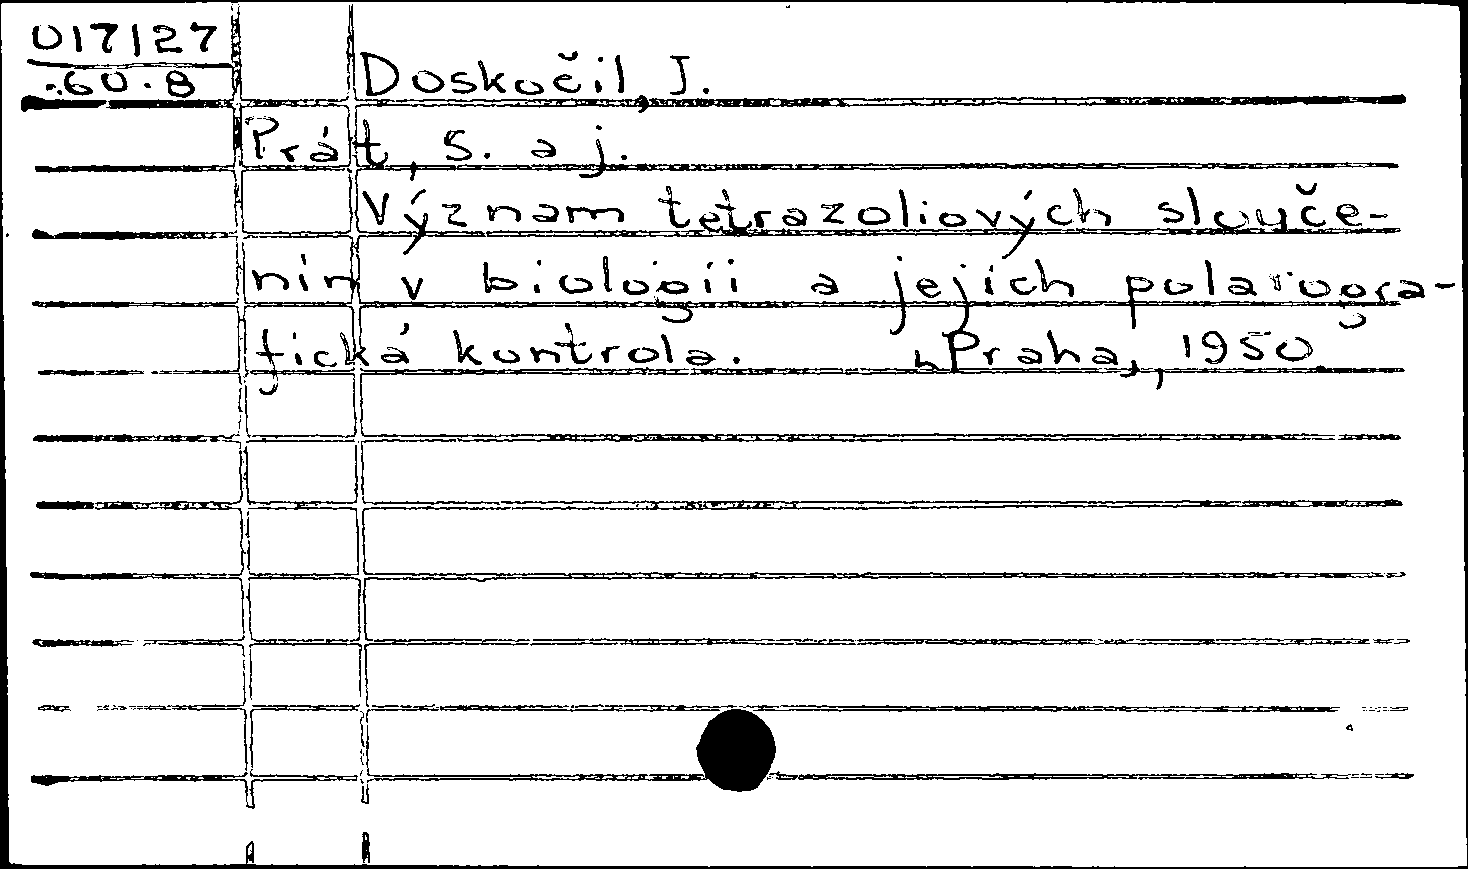 017127
60.8
Doskočil, J.
Prát, S. a j.
Význam tetrazoliových slouče-
nin v biologii a jejich polarogra-
fická kontrola. Praha, 1950